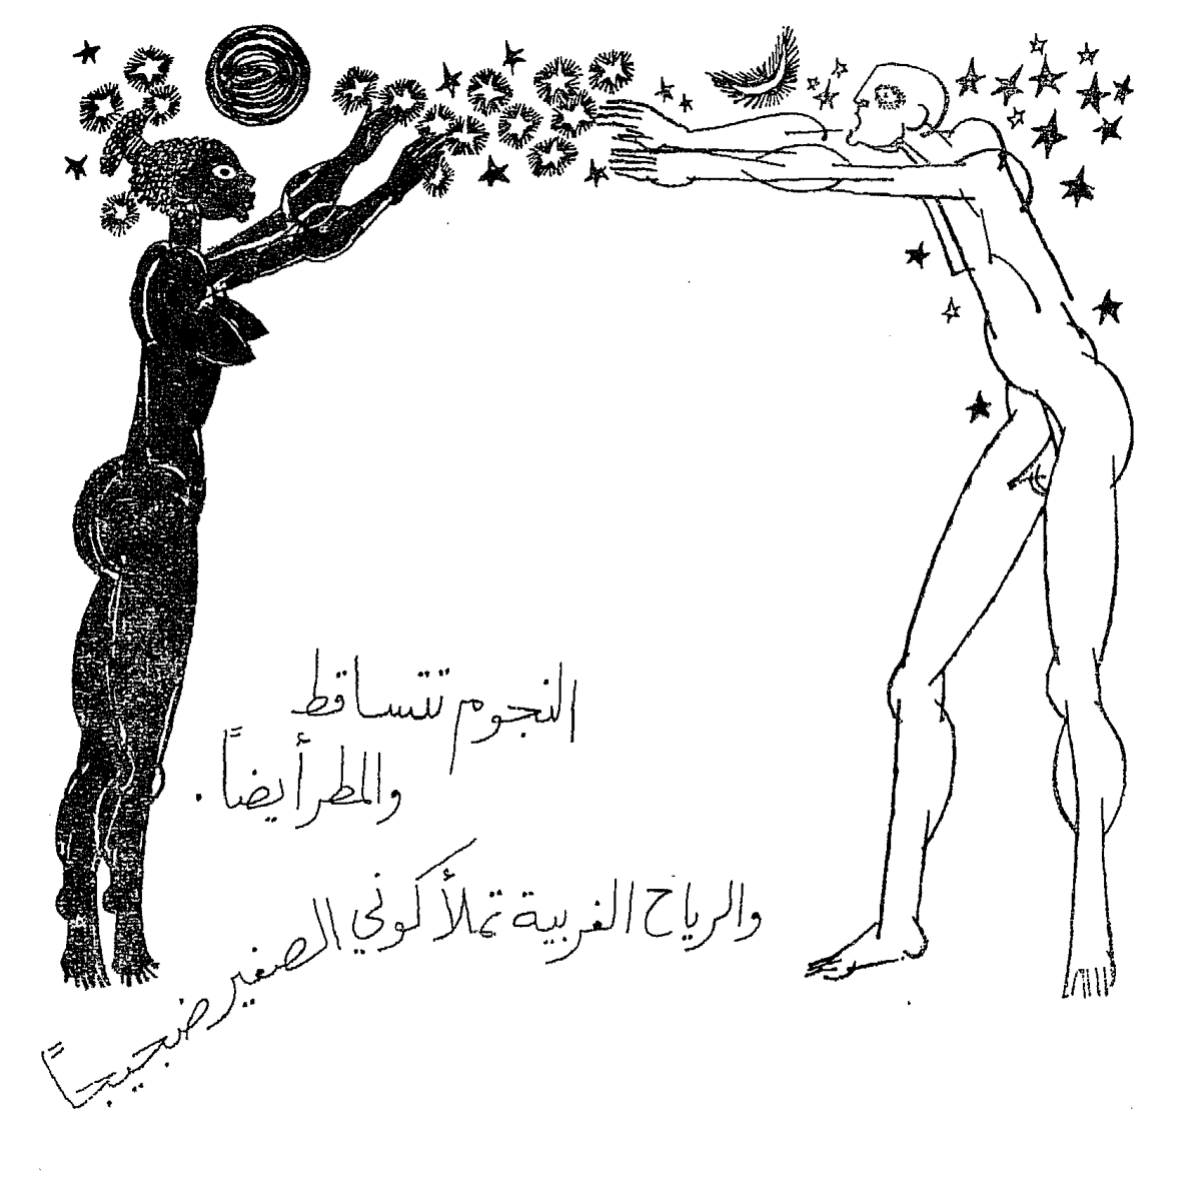 النجوم تتساقط
والمطر أيضاً.
والرياح الغربية تملأ كوني الصغير ضجيجاً